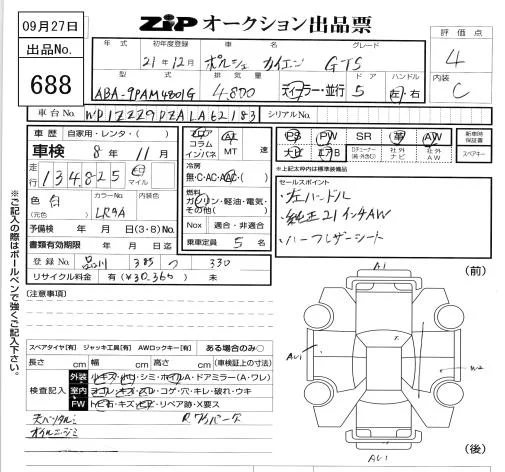 09月27日
出品No.
688
ZIP オークション出品票
評価点
4
内装
C
年式 初年度登録 車名 グレード
21年12月 ポルシェ カイエン GTS
型式 排気量 ドア ハンドル
ABA-9PAM4801G 4,800 ディーラー・並行 5 左 右
車台No. WP1ZZZ9PZALA62183 シリアルNo.
車歴 自家用・レンタ・( )
車検 8年 11月
走行 134,825 km マイル
色 白 (元色) カラーNo. LR9A
予備検査 年 月 日(3・8)No.
書類有効期限 年 月 日
登録No. 品川 385 つ 330
リサイクル料金 有(¥30,360) 未
フロア コラム インパネ AT MT 速
冷房
無・C・AC・AAC・( )
燃料
ガソリン・軽油・電気・その他( )
Nox 適合・非適合
乗車定員 5 名
PS PW SR 革 AW
ナビ エアB Dチューナー(純・外含む) 社外ナビ 社外AW
新車時保証書
スペアキー
*上記太枠内は標準装備品
セールスポイント
・左ハンドル
・純正21インチAW
・ハーフレザーシート
(注意事項)
スペアタイヤ[有] ジャッキ工具[有] AWロックキー[有] ある場合のみ○
長さ cm 幅 cm 高さ cm (車検証上の寸法)
検査記入
外装 小キズ・凹・シミ・ホイルA・ドアミラー(A・ワレ)
室内 ヨゴレ・キズ・スレ・コゲ・穴・キレ・破れ・ウキ
FW トビ石・キズ・ヒビ・リペア跡・X要ス
天バンタルミ R ワイパーダ
オイルニジミ
(前)
A1
AU1
W2
AU1
(後)
※ご記入の際はボールペンで強くご記入下さい。